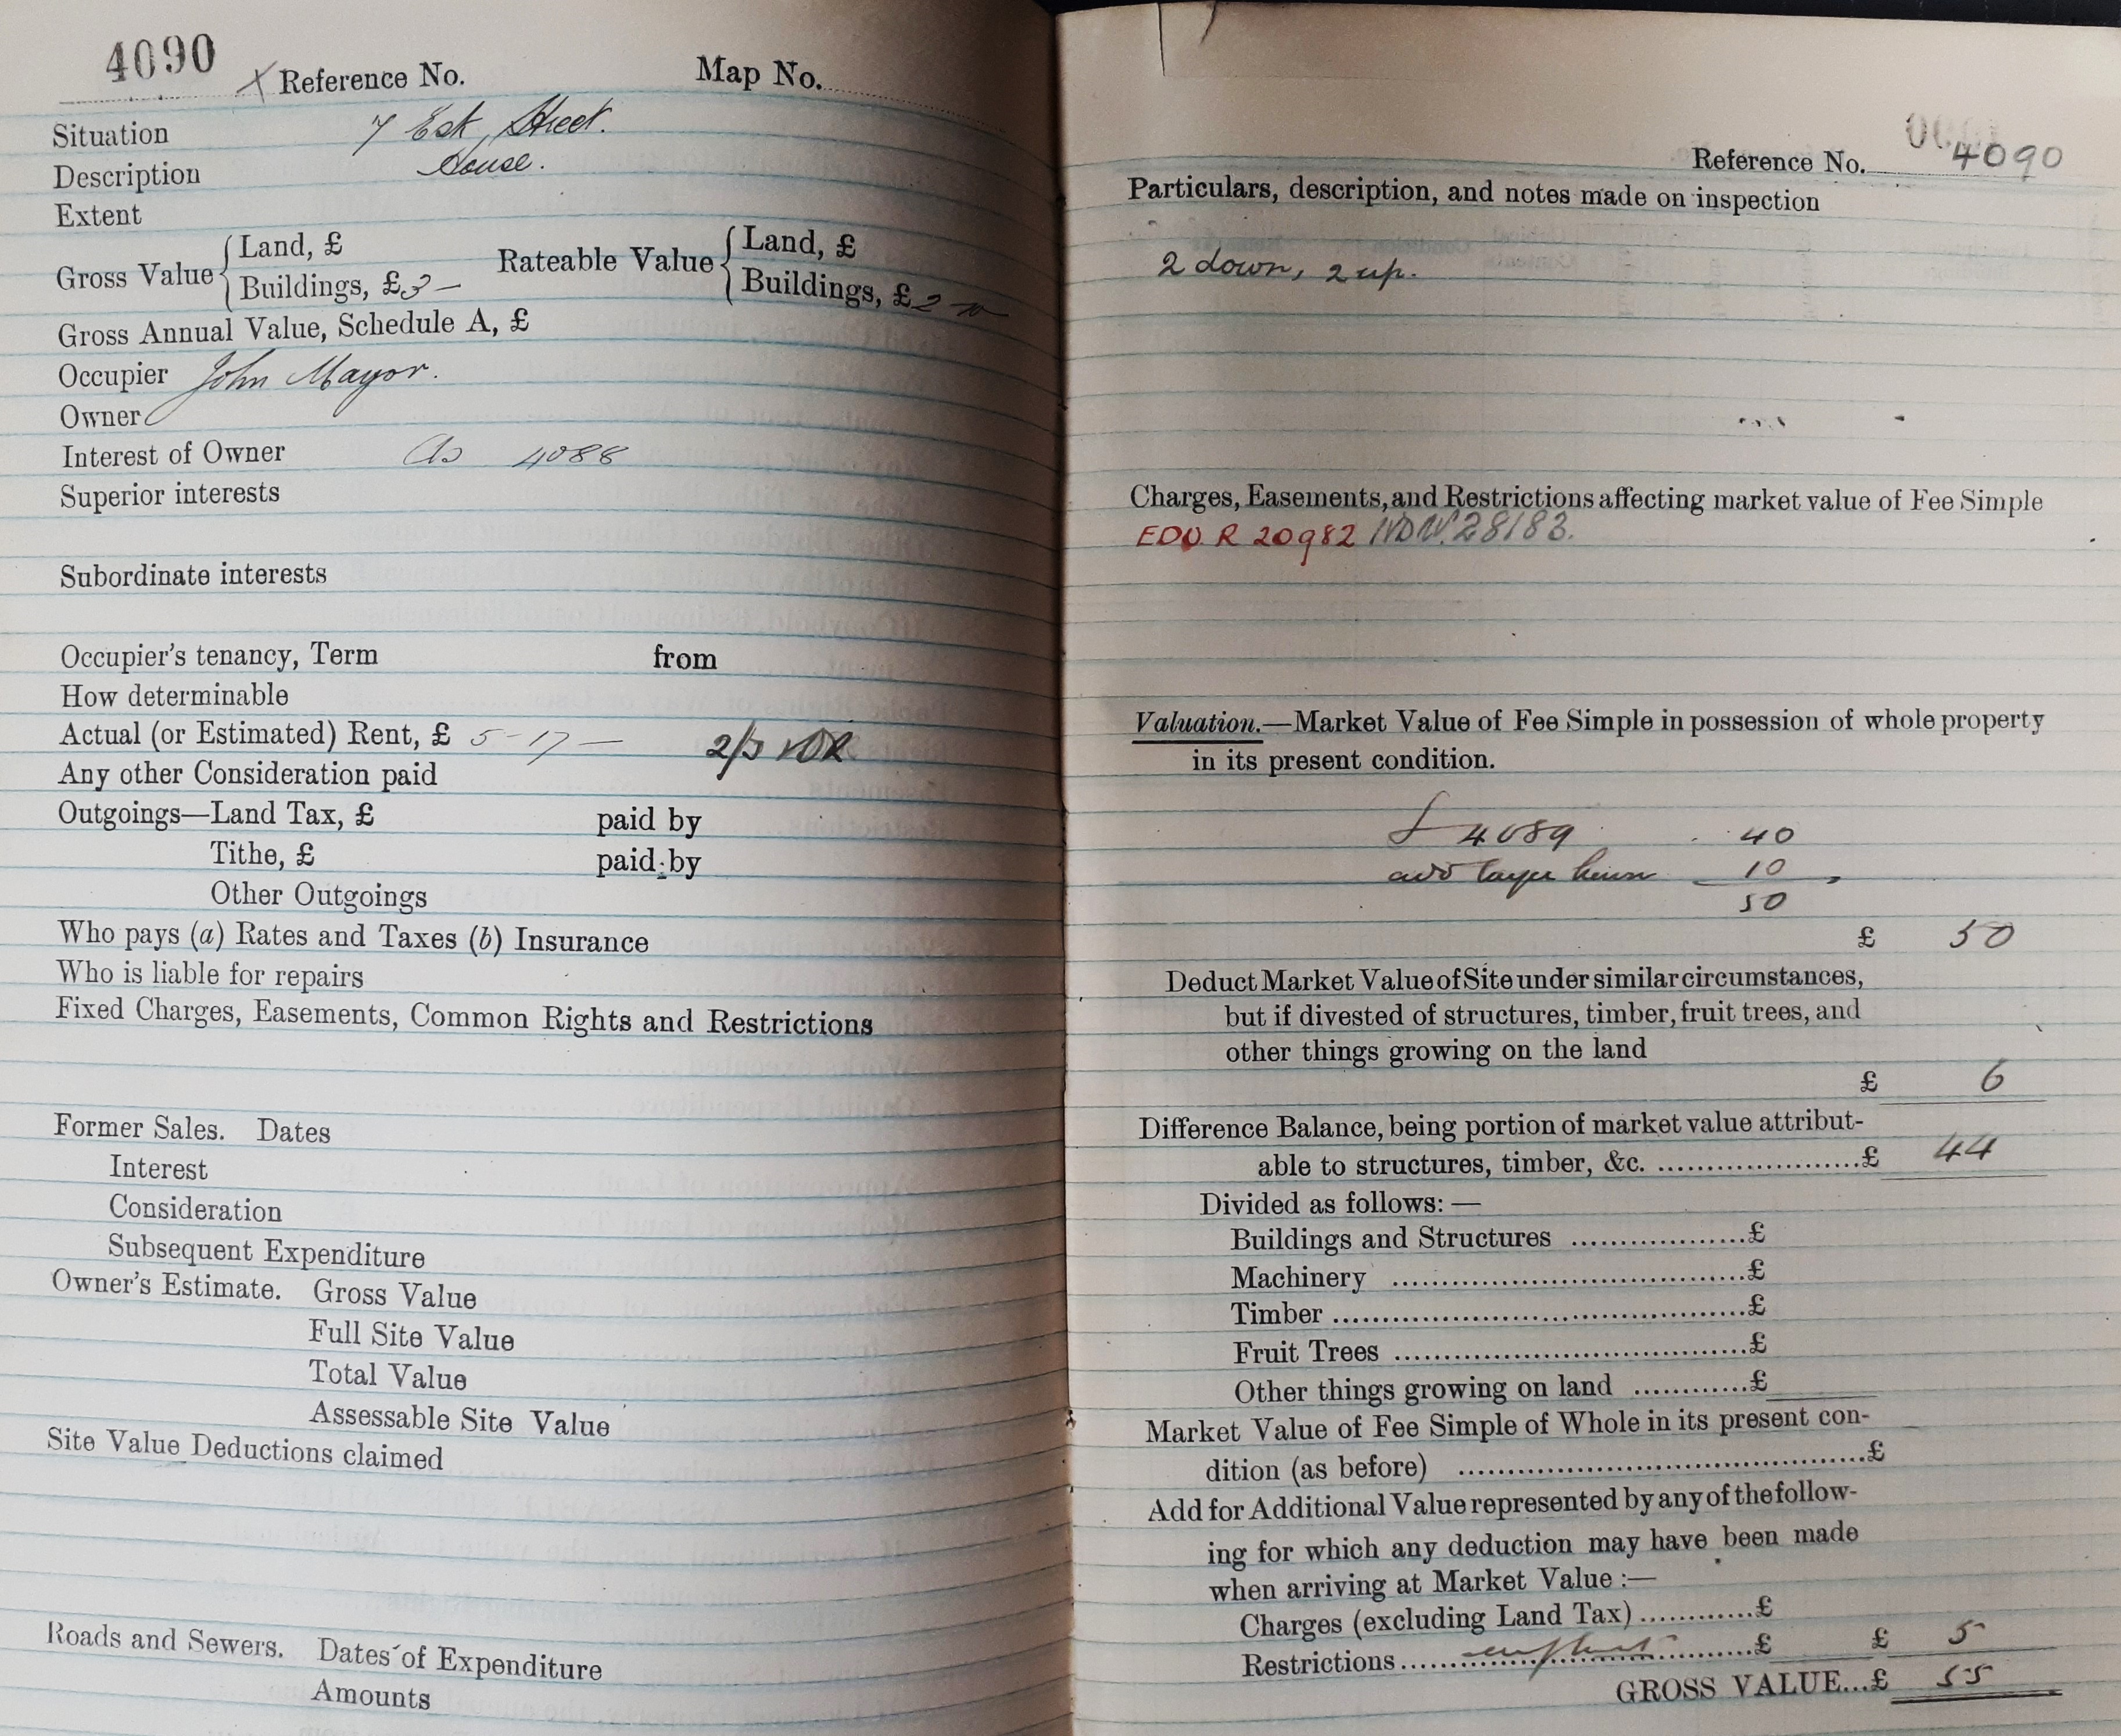 4090
Reference No. Map No.
Situation 7 Esk Street.
Description House.
Extent
Gross Value { Land, £ Rateable Value { Land, £
Buildings, £3 — Buildings, £2 10
Gross Annual Value, Schedule A, £
Occupier John Mayor.
Owner
Interest of Owner As 4088
Superior interests
Subordinate interests
Occupier's tenancy, Term from
How determinable
Actual (or Estimated) Rent, £ 5-17- 2/3
Any other Consideration paid
Outgoings—Land Tax, £ paid by
Tithe, £ paid by
Other Outgoings
Who pays (a) Rates and Taxes (b) Insurance
Who is liable for repairs
Fixed Charges, Easements, Common Rights and Restrictions
Former Sales. Dates
Interest
Consideration
Subsequent Expenditure
Owner's Estimate. Gross Value
Full Site Value
Total Value
Assessable Site Value
Site Value Deductions claimed
Roads and Sewers. Dates of Expenditure
Amounts
Reference No. 4090
Particulars, description, and notes made on inspection
2 down, 2 up.
Charges, Easements, and Restrictions affecting market value of Fee Simple
EDO R 20982 28183.
Valuation.—Market Value of Fee Simple in possession of whole property
in its present condition.
4089 40
add larger house 10
50
£ 50
Deduct Market Value of Site under similar circumstances,
but if divested of structures, timber, fruit trees, and
other things growing on the land
£ 6
Difference Balance, being portion of market value attribut-
able to structures, timber, &c. ......................£ 44
Divided as follows:—
Buildings and Structures ..................£
Machinery ......................................£
Timber ..........................................£
Fruit Trees .....................................£
Other things growing on land ............£
Market Value of Fee Simple of Whole in its present con-
dition (as before) ..............................................£
Add for Additional Value represented by any of the follow-
ing for which any deduction may have been made
when arriving at Market Value :—
Charges (excluding Land Tax) ............£
Restrictions ..................................£ £ 5
GROSS VALUE...£ 55